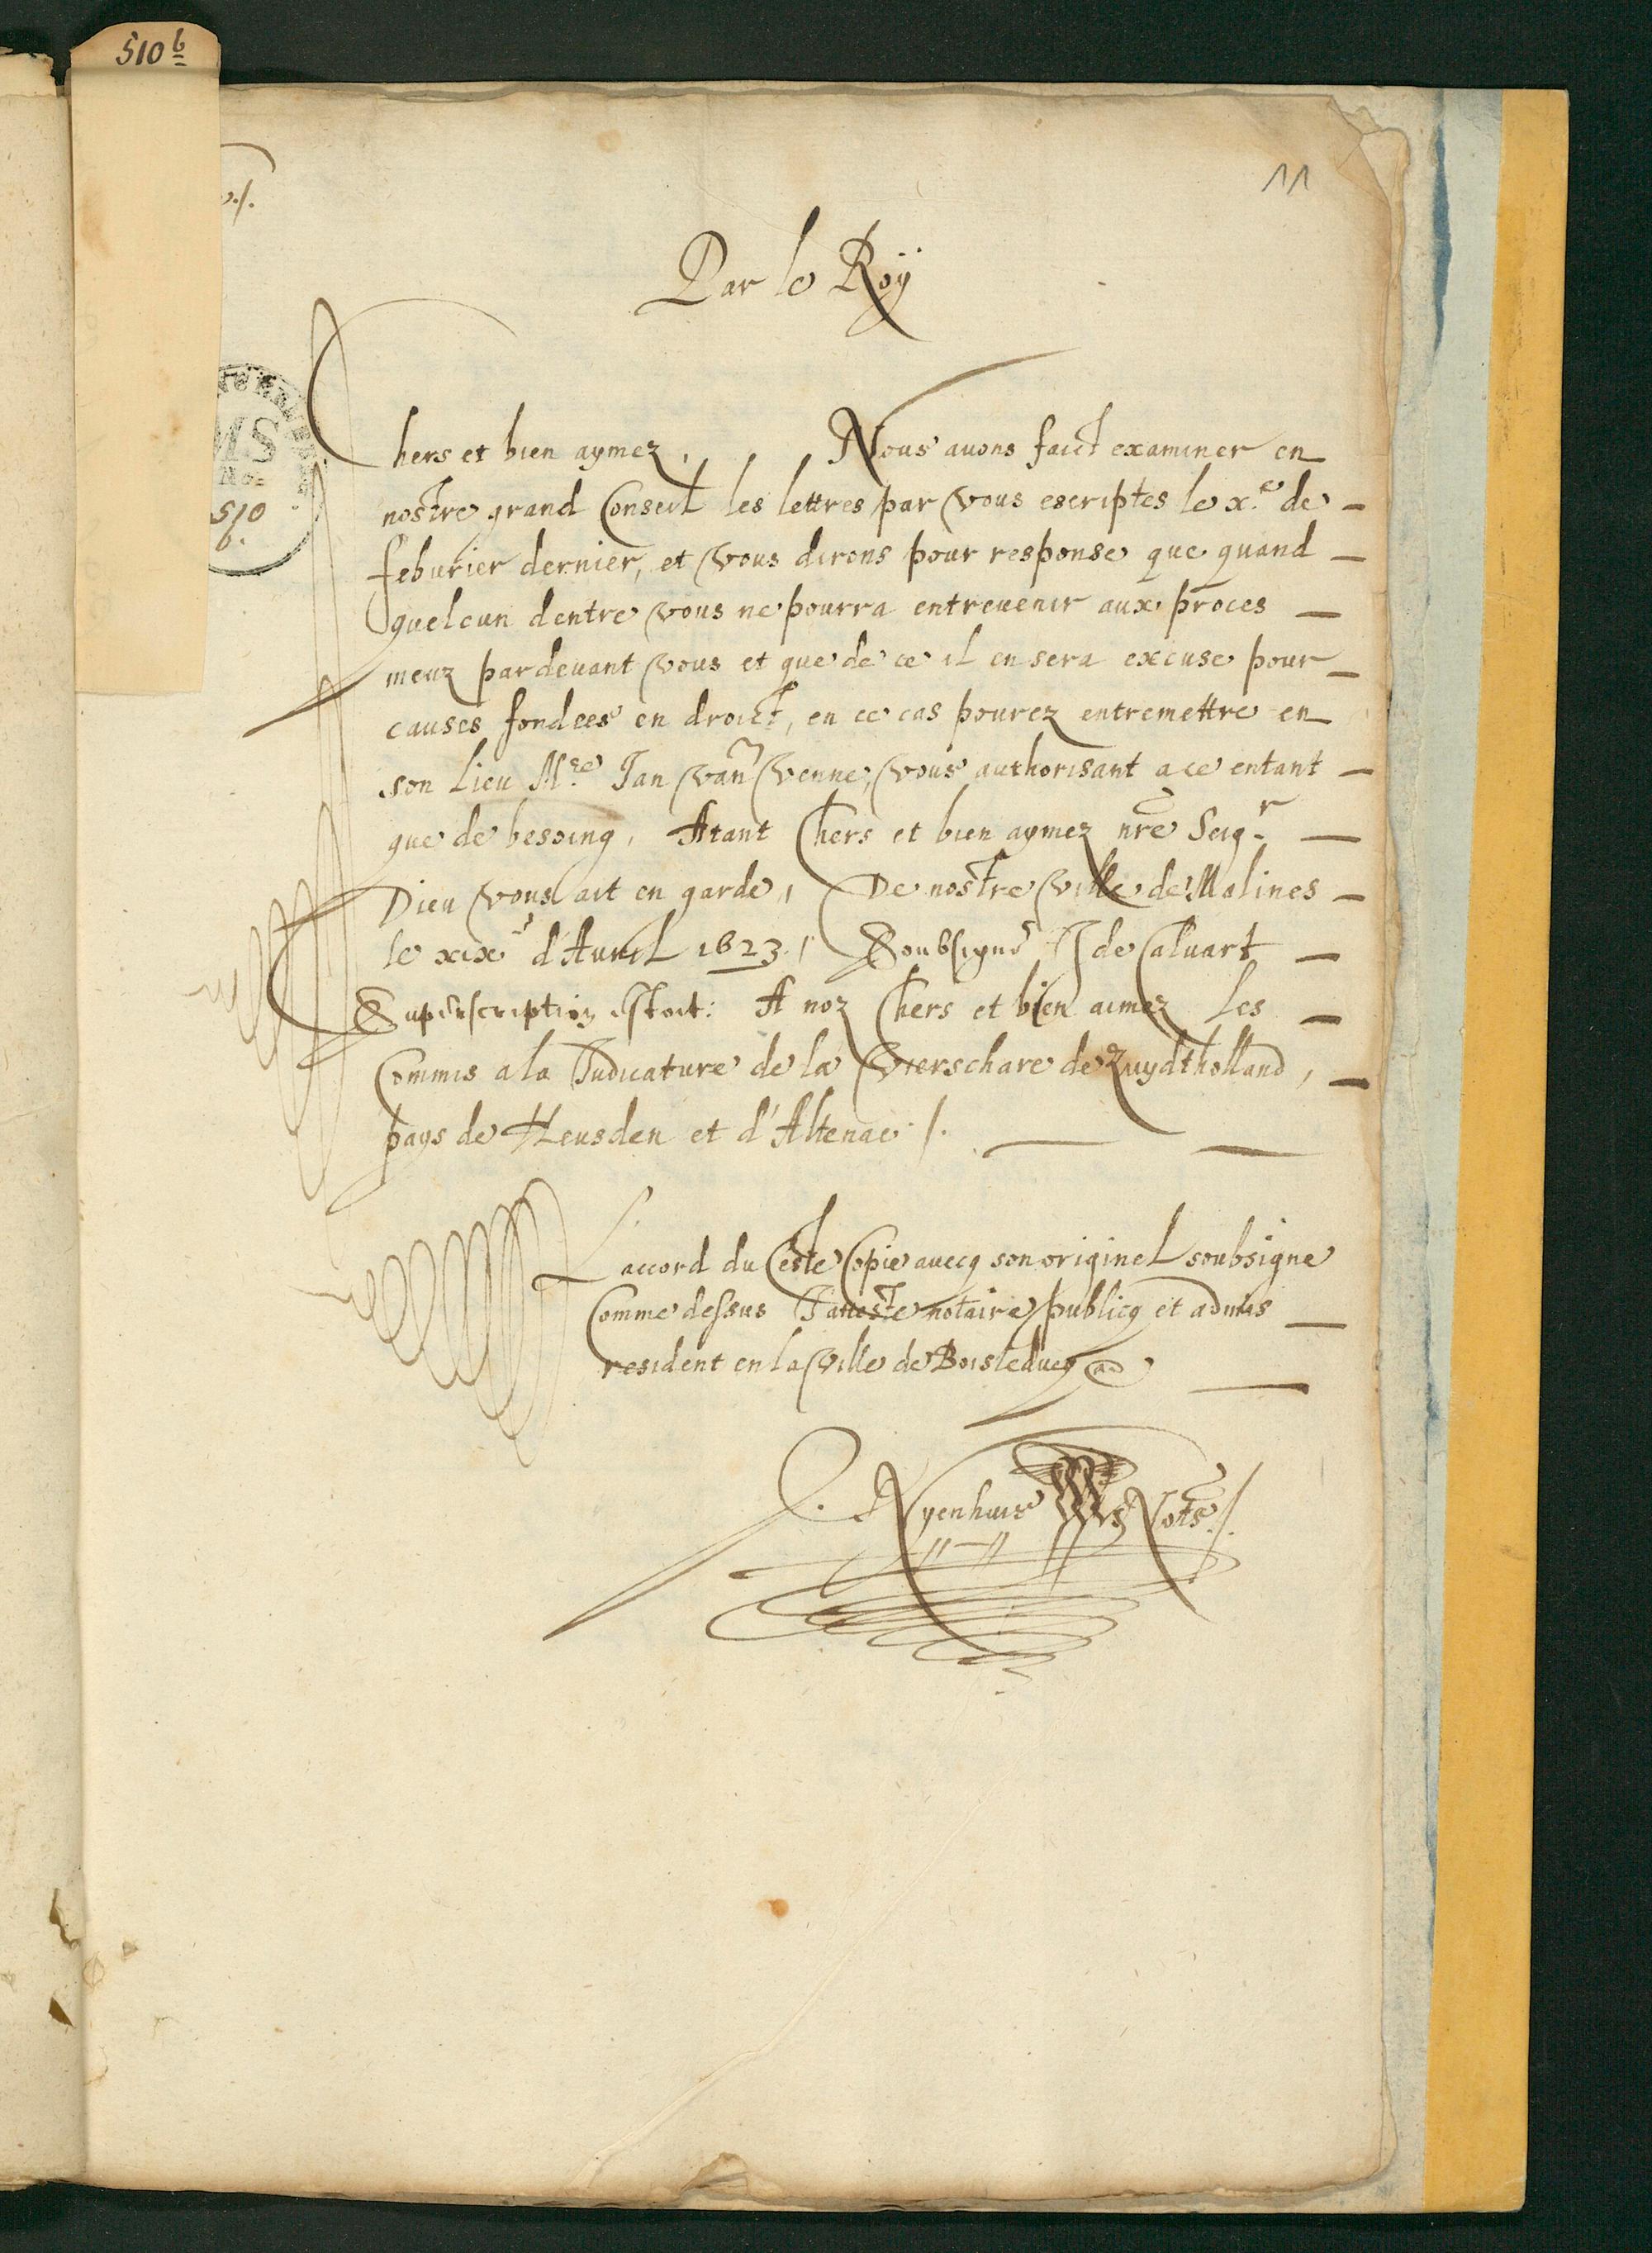 510 b
11
Par le Roÿ
Chers et bien aymez, Nous auons faict examiner en
nostre grand Conseil les lettres par vous escriptes le x.e de
feburier dernier, et vous dirons pour response que quand
quelcun dentre vous ne pourra entreuenir aux proces
meuz pardeuant vous et que de ce il en sera excuse pour
causes fondees en droict, en ce cas pourez entremettre en
son Lieu M.re Jan van Venne, vous authorisant a ce entant
que de besoing, Atant Chers et bien aymez nre Seig.r
Dieu vous ait en garde, De nostre ville de Malines
le xix.e d'Auril 1623, Soubsigné J de Caluart
Superscription estoit: A noz Chers et bien aimez Les
Commis a la Judicature de la Vierschare de Zuydtholland,
pays de Heusden et d'Altenae ./.
L accord du Ceste Copie auecq son originel soubsigne
Comme dessus J'atteste notaire publicq et admis
resident en la Ville de Boisleducq
Nyenhuis Nots ./.
MS
No
510
b.